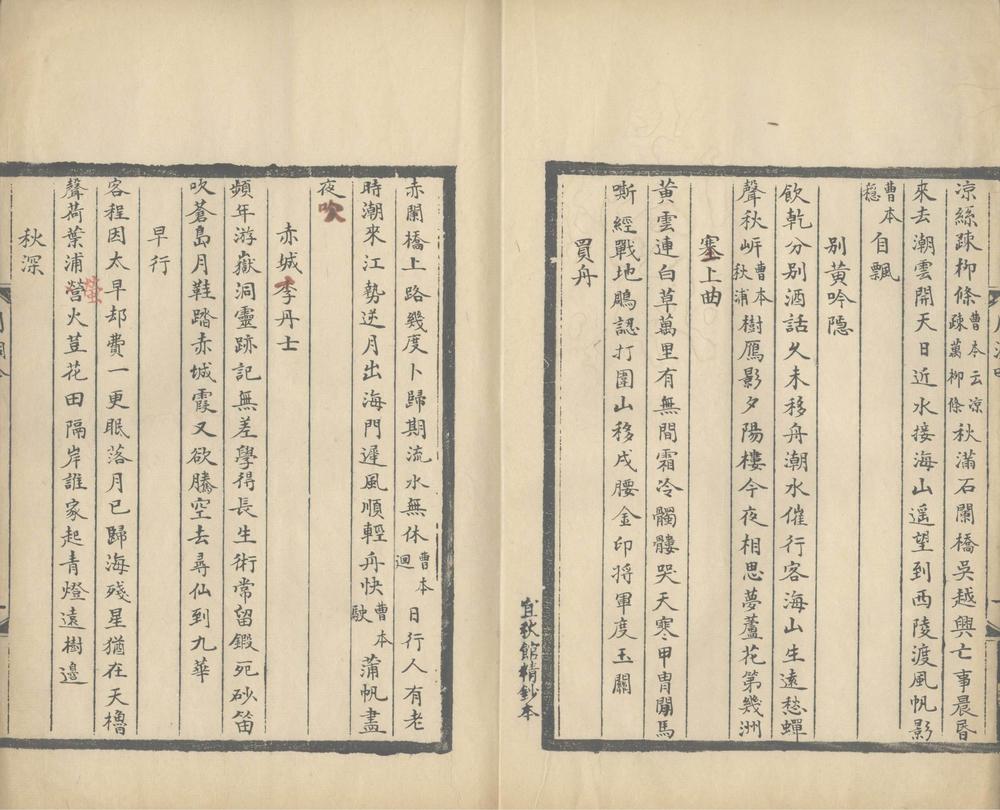 涼絲疎柳條曹本云涼疎萬柳條秋滿石闌橋吳越興亡事晨昏
來去潮雲開天日近水接海山遥望到西陵渡風帆影
曹本穏自飄
別黃吟隱
飲乾分別酒話久未移舟潮水催行客海山生遠愁蟬
聲秋㟁曹本秋浦樹鴈影夕陽樓今夜相思夢蘆花第幾洲
塞上曲
黃雲連白草萬里有無間霜冷髑髏哭天寒甲冑閒馬
嘶經戰地鵰認打圍山移戍腰金印将軍度玉關
買舟
宜秋館精鈔本
赤闌橋上路幾度卜歸期流水無休曹本迴日行人有老
時潮來江勢逆月出海門遲風順輕舟快曹本駛蒲帆盡
夜吹
赤城李丹士
頻年游嶽洞靈跡記無差學得長生術常留鍛死砂笛
吹蒼島月鞋踏赤城霞又欲騰空去尋仙到九華
早行
客程因太早却費一更眠落月已歸海殘星猶在天櫓
聲荷葉浦營火荳花田隔岸誰家起青燈遠樹邊
螢
秋深